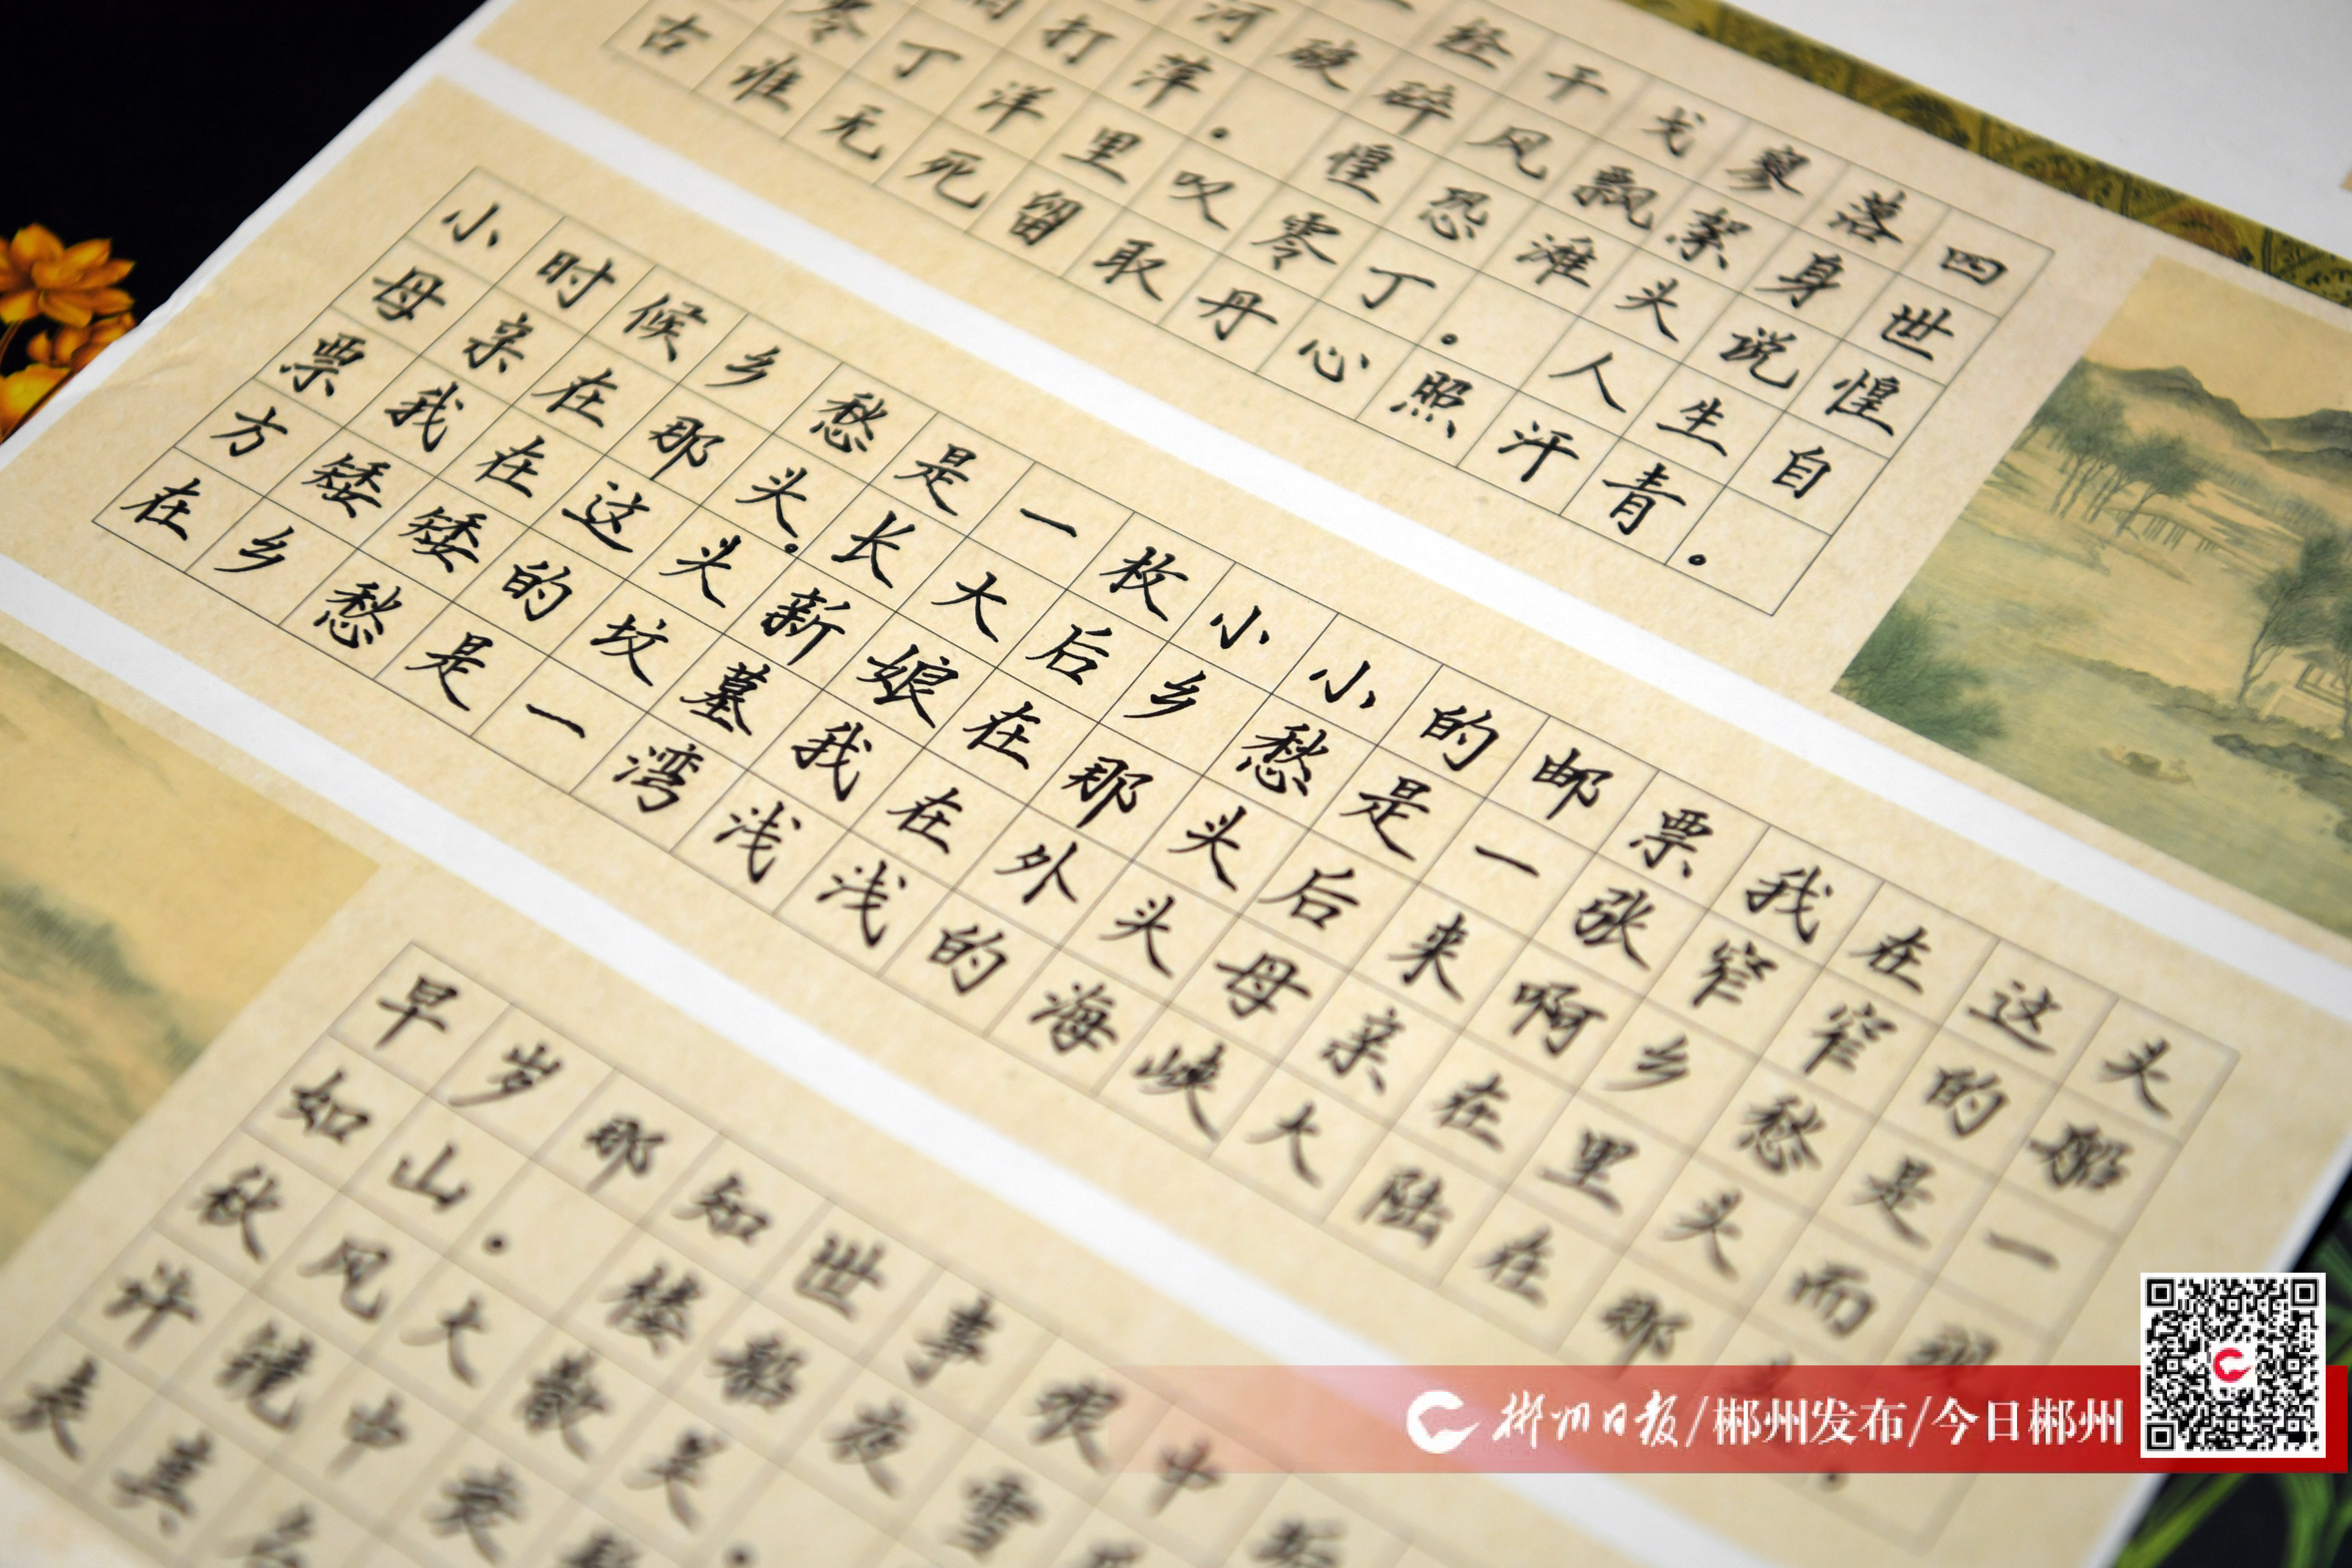 一经干戈寥落四
河破碎风飘絮身世
打萍。惶恐滩头说惶
零丁洋里叹零丁。人生自
古谁无死留取丹心照汗青。
小时候乡愁是一枚小小的邮票我在这头
母亲在那头。长大后乡愁是一张窄窄的船
票我在这头新娘在那头后来啊乡愁是一
方矮矮的坟墓我在外头母亲在里头而现
在乡愁是一湾浅浅的海峡大陆在那
早岁那知世事艰中
如山。楼船夜雪
秋风大散关。
许镜中衰
表真名
郴州日报/郴州发布/今日郴州